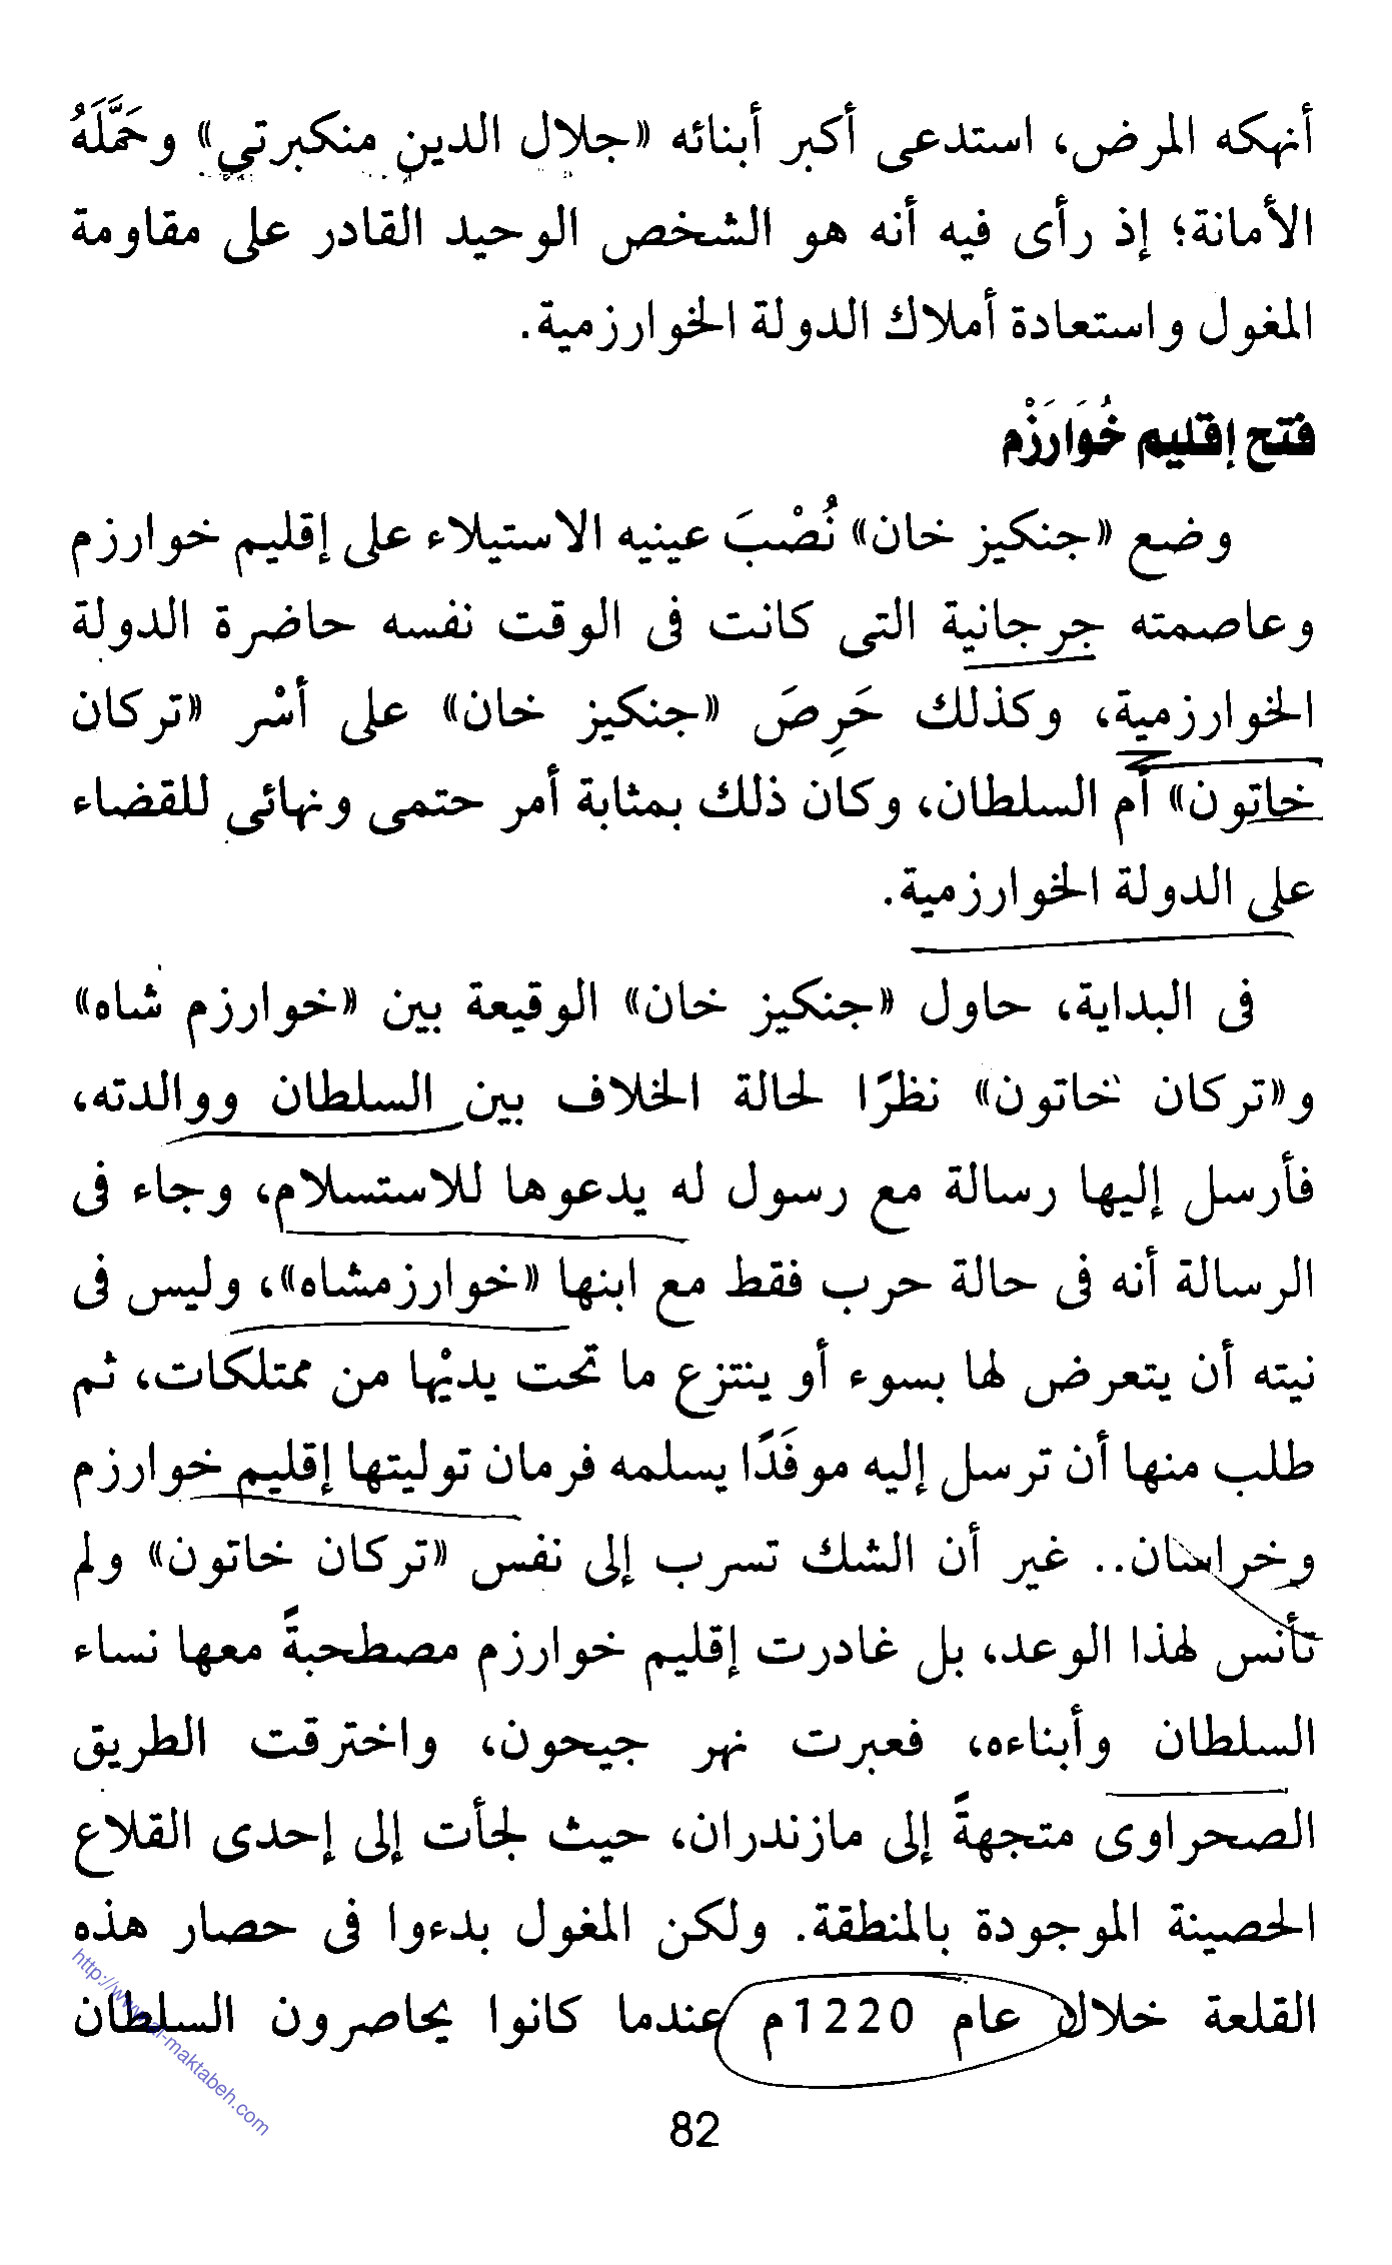 أنهكه المرض، استدعى أكبر أبنائه «جلال الدين منكبرتي» وحَمَّلَهُ
الأمانة؛ إذ رأى فيه أنه هو الشخص الوحيد القادر على مقاومة
المغول واستعادة أملاك الدولة الخوارزمية.
فتح إقليم خُوَارَزْم
وضع «جنكيز خان» نُصْبَ عينيه الاستيلاء على إقليم خوارزم
وعاصمته جرجانية التى كانت فى الوقت نفسه حاضرة الدولة
الخوارزمية، وكذلك حَرِصَ «جنكيز خان» على أسْر «تركان
خاتون» أم السلطان، وكان ذلك بمثابة أمر حتمى ونهائى للقضاء
على الدولة الخوارزمية.
فى البداية، حاول «جنكيز خان» الوقيعة بين «خوارزم شاه»
و«تركان خاتون» نظرًا لحالة الخلاف بين السلطان ووالدته،
فأرسل إليها رسالة مع رسول له يدعوها للاستسلام، وجاء فى
الرسالة أنه فى حالة حرب فقط مع ابنها «خوارزمشاه»، وليس فى
نيته أن يتعرض لها بسوء أو ينتزع ما تحت يديْها من ممتلكات، ثم
طلب منها أن ترسل إليه موفَدًا يسلمه فرمان توليتها إقليم خوارزم
وخراسان.. غير أن الشك تسرب إلى نفس «تركان خاتون» ولم
تأنس لهذا الوعد، بل غادرت إقليم خوارزم مصطحبةً معها نساء
السلطان وأبناءه، فعبرت نهر جيحون، واخترقت الطريق
الصحراوى متجهةً إلى مازندران، حيث لجأت إلى إحدى القلاع
الحصينة الموجودة بالمنطقة. ولكن المغول بدءوا فى حصار هذه
القلعة خلال عام 1220م عندما كانوا يحاصرون السلطان
82
http://www.al-maktabeh.com